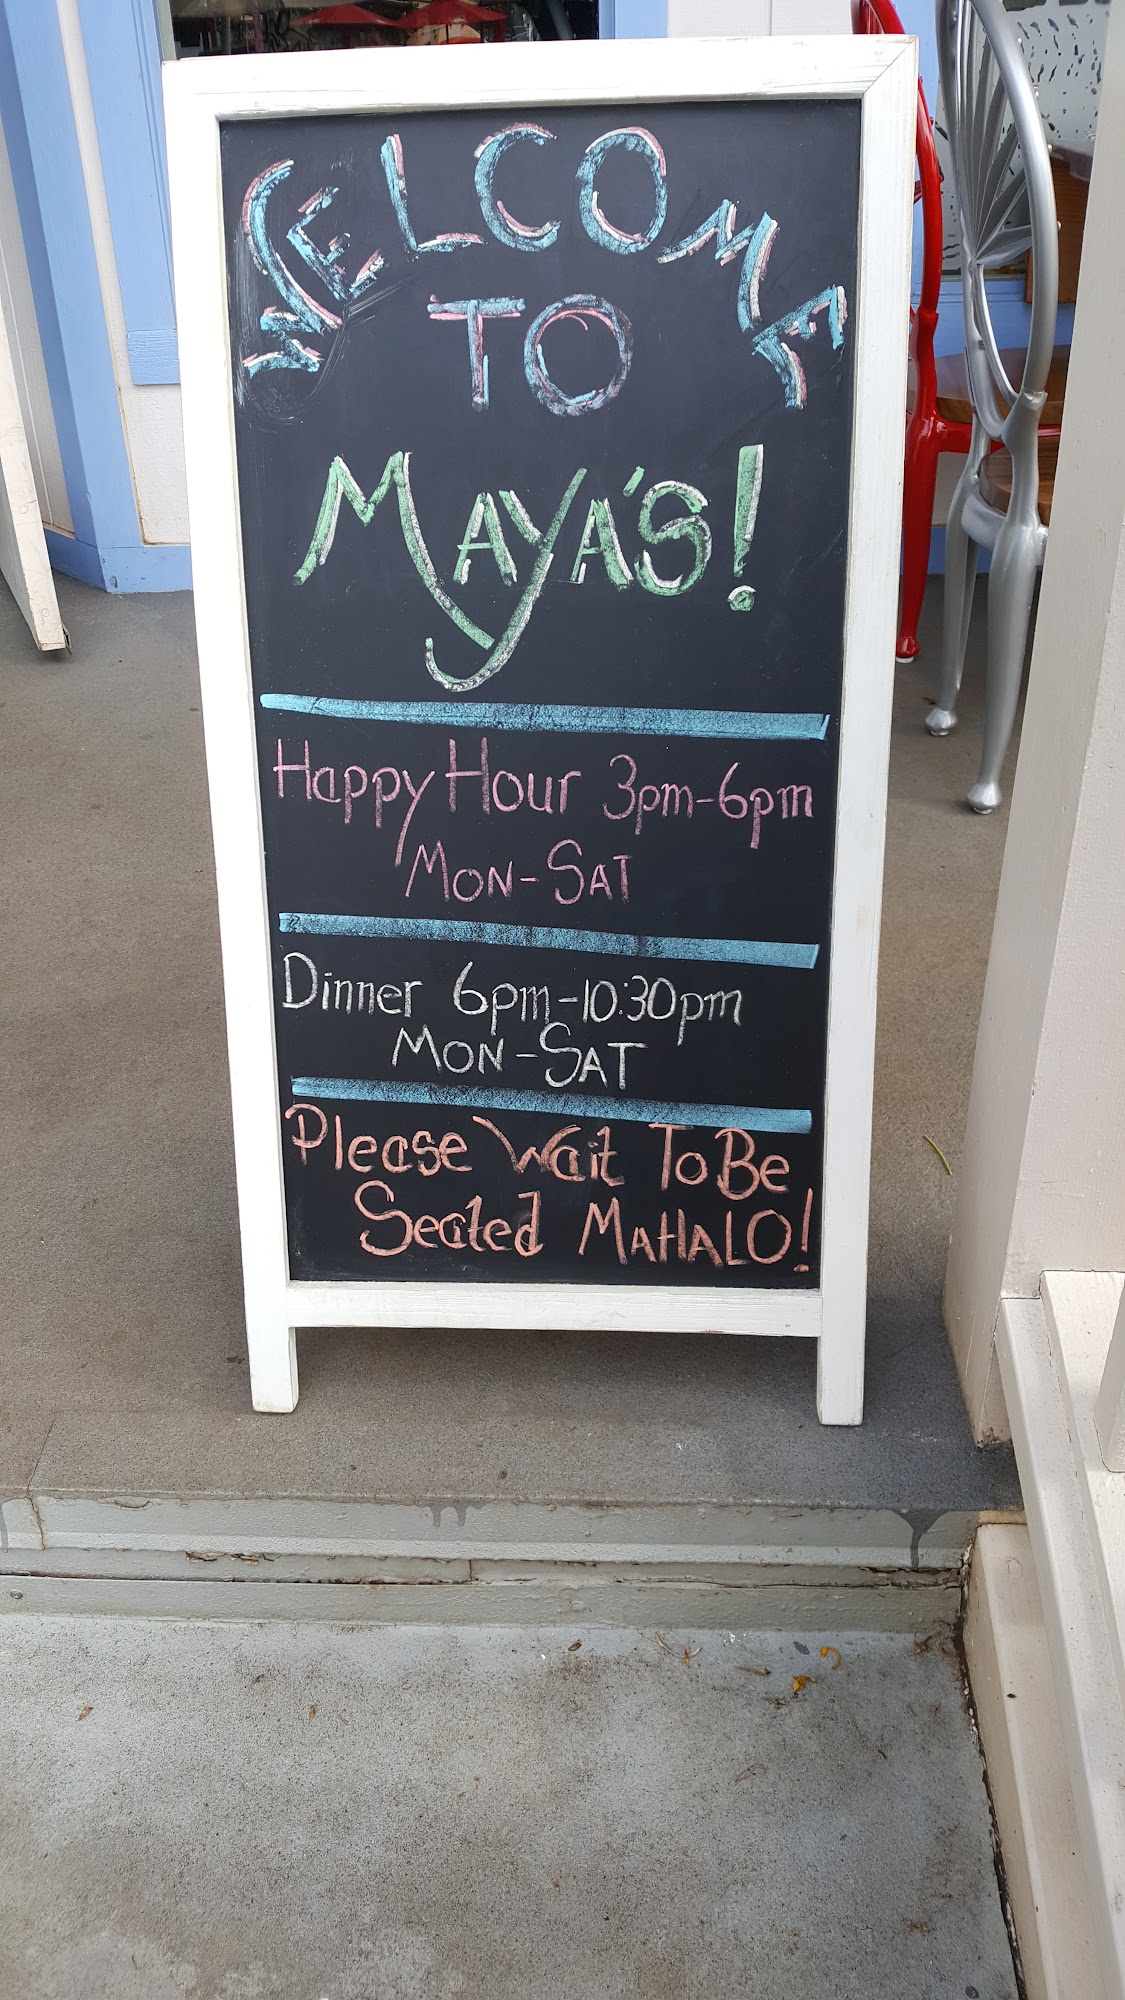 WELCOME
TO
MAYA'S!
Happy Hour 3pm-6pm
MON-SAT
Dinner 6pm-10:30pm
MON-SAT
Please Wait To Be
Seated MAHALO!